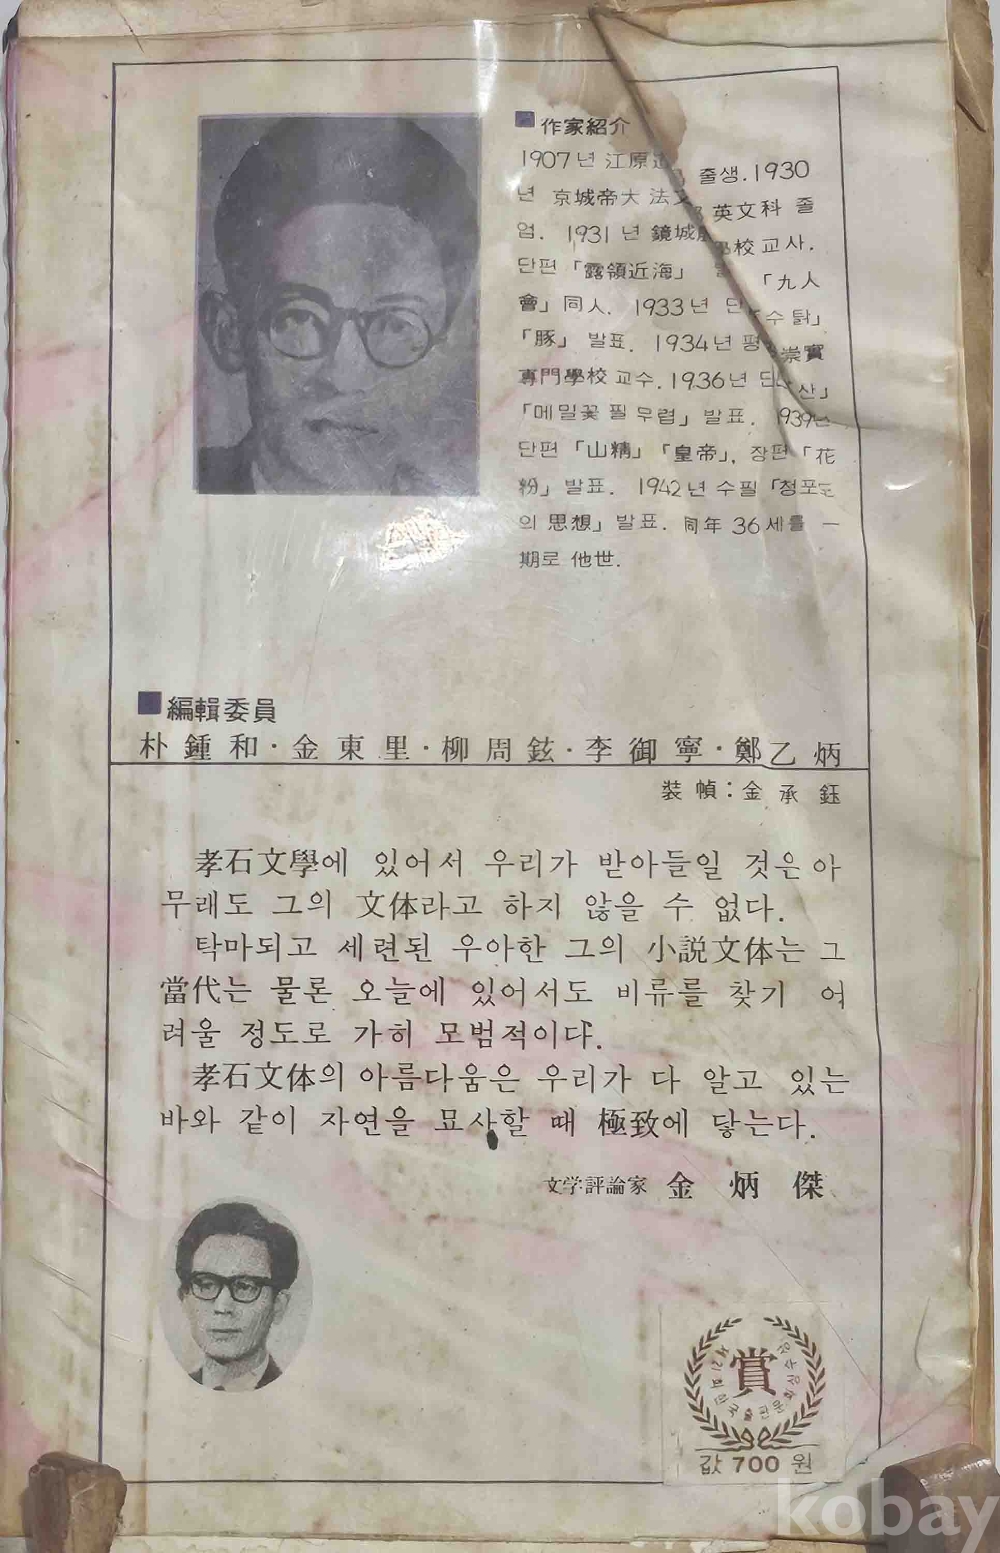 ■ 作家紹介
1907년 江原 출생. 1930
년 京城帝大 法文 英文科 졸
업. 1931년 鏡城 校 교사.
단편 「露領近海」 「九人
會」 同人. 1933년 단 「수탉」
「豚」 발표. 1934년 평 崇實
專門學校 교수. 1936년 단 「산」
「메밀꽃 필 무렵」 발표. 1939년
단편 「山精」 「皇帝」, 장편 「花
粉」 발표. 1942년 수필 「청포도
의 思想」 발표. 同年 36세를 一
期로 他世.
■ 編輯委員
朴鍾和·金東里·柳周鉉·李御寧·鄭乙炳
裝幀:金承鈺
孝石文學에 있어서 우리가 받아들일 것은 아
무래도 그의 文体라고 하지 않을 수 없다.
탁마되고 세련된 우아한 그의 小説文体는 그
當代는 물론 오늘에 있어서도 비류를 찾기 어
려울 정도로 가히 모범적이다.
孝石文体의 아름다움은 우리가 다 알고 있는
바와 같이 자연을 묘사할 때 極致에 닿는다.
文学評論家 金炳傑
賞
값 700 원
kobay